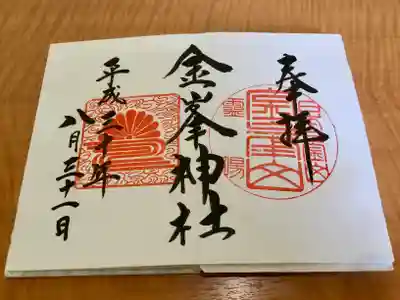 奉拝
金峯神社
平成三十年
八月三十一日